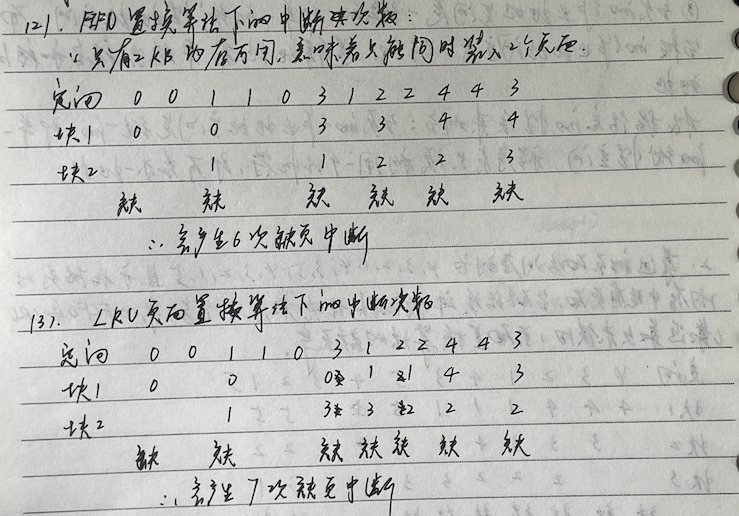 (2). FIFO 置换算法下的中断次数:
∵ 只有2KB内存空间,意味着只能同时装入2个页面.
空间 0 0 1 1 0 3 1 2 2 4 4 3
块1 0 0 3 3 4 4
块2 1 1 2 2 3
缺 缺 缺 缺 缺 缺
∴ 会产生6次缺页中断
(3). LRU页面置换算法下的中断次数
空间 0 0 1 1 0 3 1 2 2 4 4 3
块1 0 0 0 1 1 4 3
块2 1 3 3 2 2 2
缺 缺 缺 缺 缺 缺 缺
∴ 会产生7次缺页中断